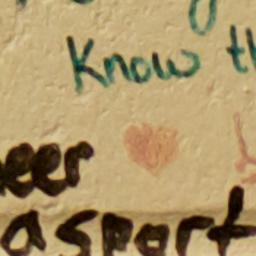 Know th
eer
aspart